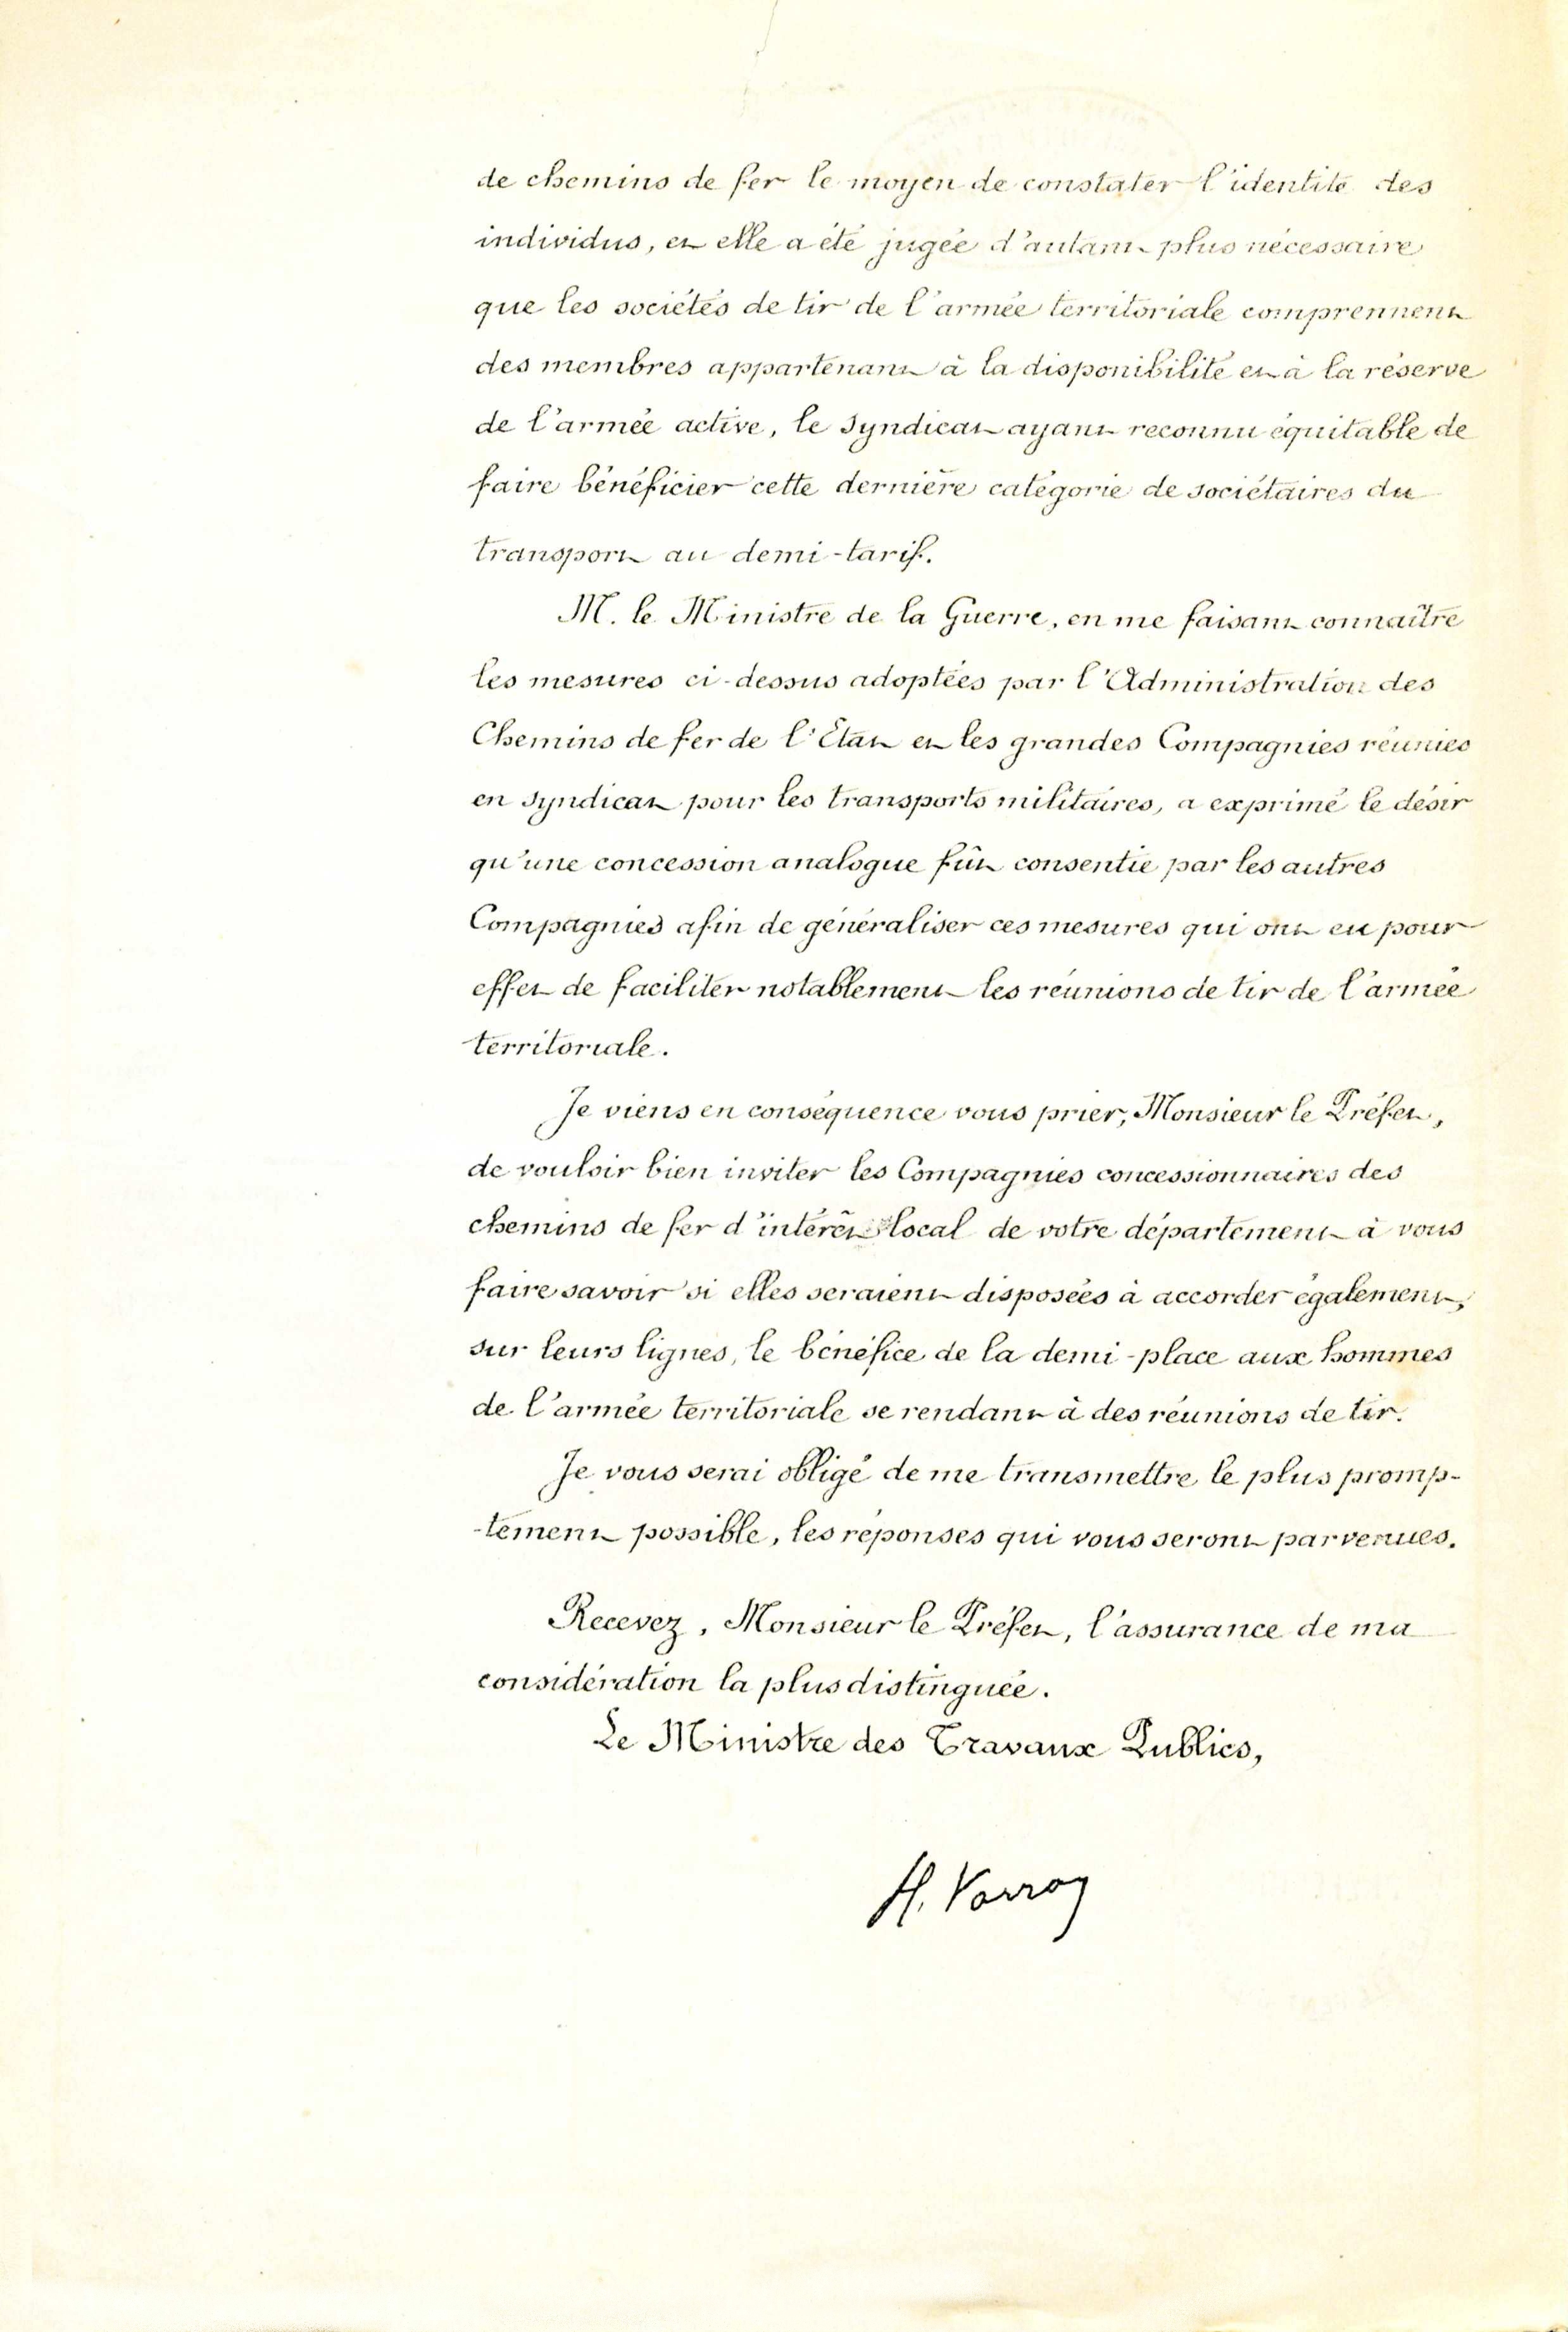 de chemins de fer le moyen de constater l'identité des
individus, et elle a été jugée d'autant plus nécessaire
que les sociétés de tir de l'armée territoriale comprennent
des membres appartenant à la disponibilité et à la réserve
de l'armée active, le Syndicat ayant reconnu équitable de
faire bénéficier cette dernière catégorie de sociétaires du
transport au demi-tarif.
M. le Ministre de la Guerre, en me faisant connaître
les mesures ci-dessus adoptées par l'Administration des
Chemins de fer de l'État et les grandes Compagnies réunies
en Syndicat pour les transports militaires, a exprimé le désir
qu'une concession analogue fût consentie par les autres
Compagnies afin de généraliser ces mesures qui ont eu pour
effet de faciliter notablement les réunions de tir de l'armée
territoriale.
Je viens en conséquence vous prier, Monsieur le Préfet,
de vouloir bien inviter les Compagnies concessionnaires des
chemins de fer d'intérêt local de votre département à vous
faire savoir si elles seraient disposées à accorder également,
sur leurs lignes, le bénéfice de la demi-place aux hommes
de l'armée territoriale se rendant à des réunions de tir.
Je vous serai obligé de me transmettre le plus promp-
-tement possible, les réponses qui vous seront parvenues.
Recevez, Monsieur le Préfet, l'assurance de ma
considération la plus distinguée.
Le Ministre des Travaux Publics,
H. Varroy